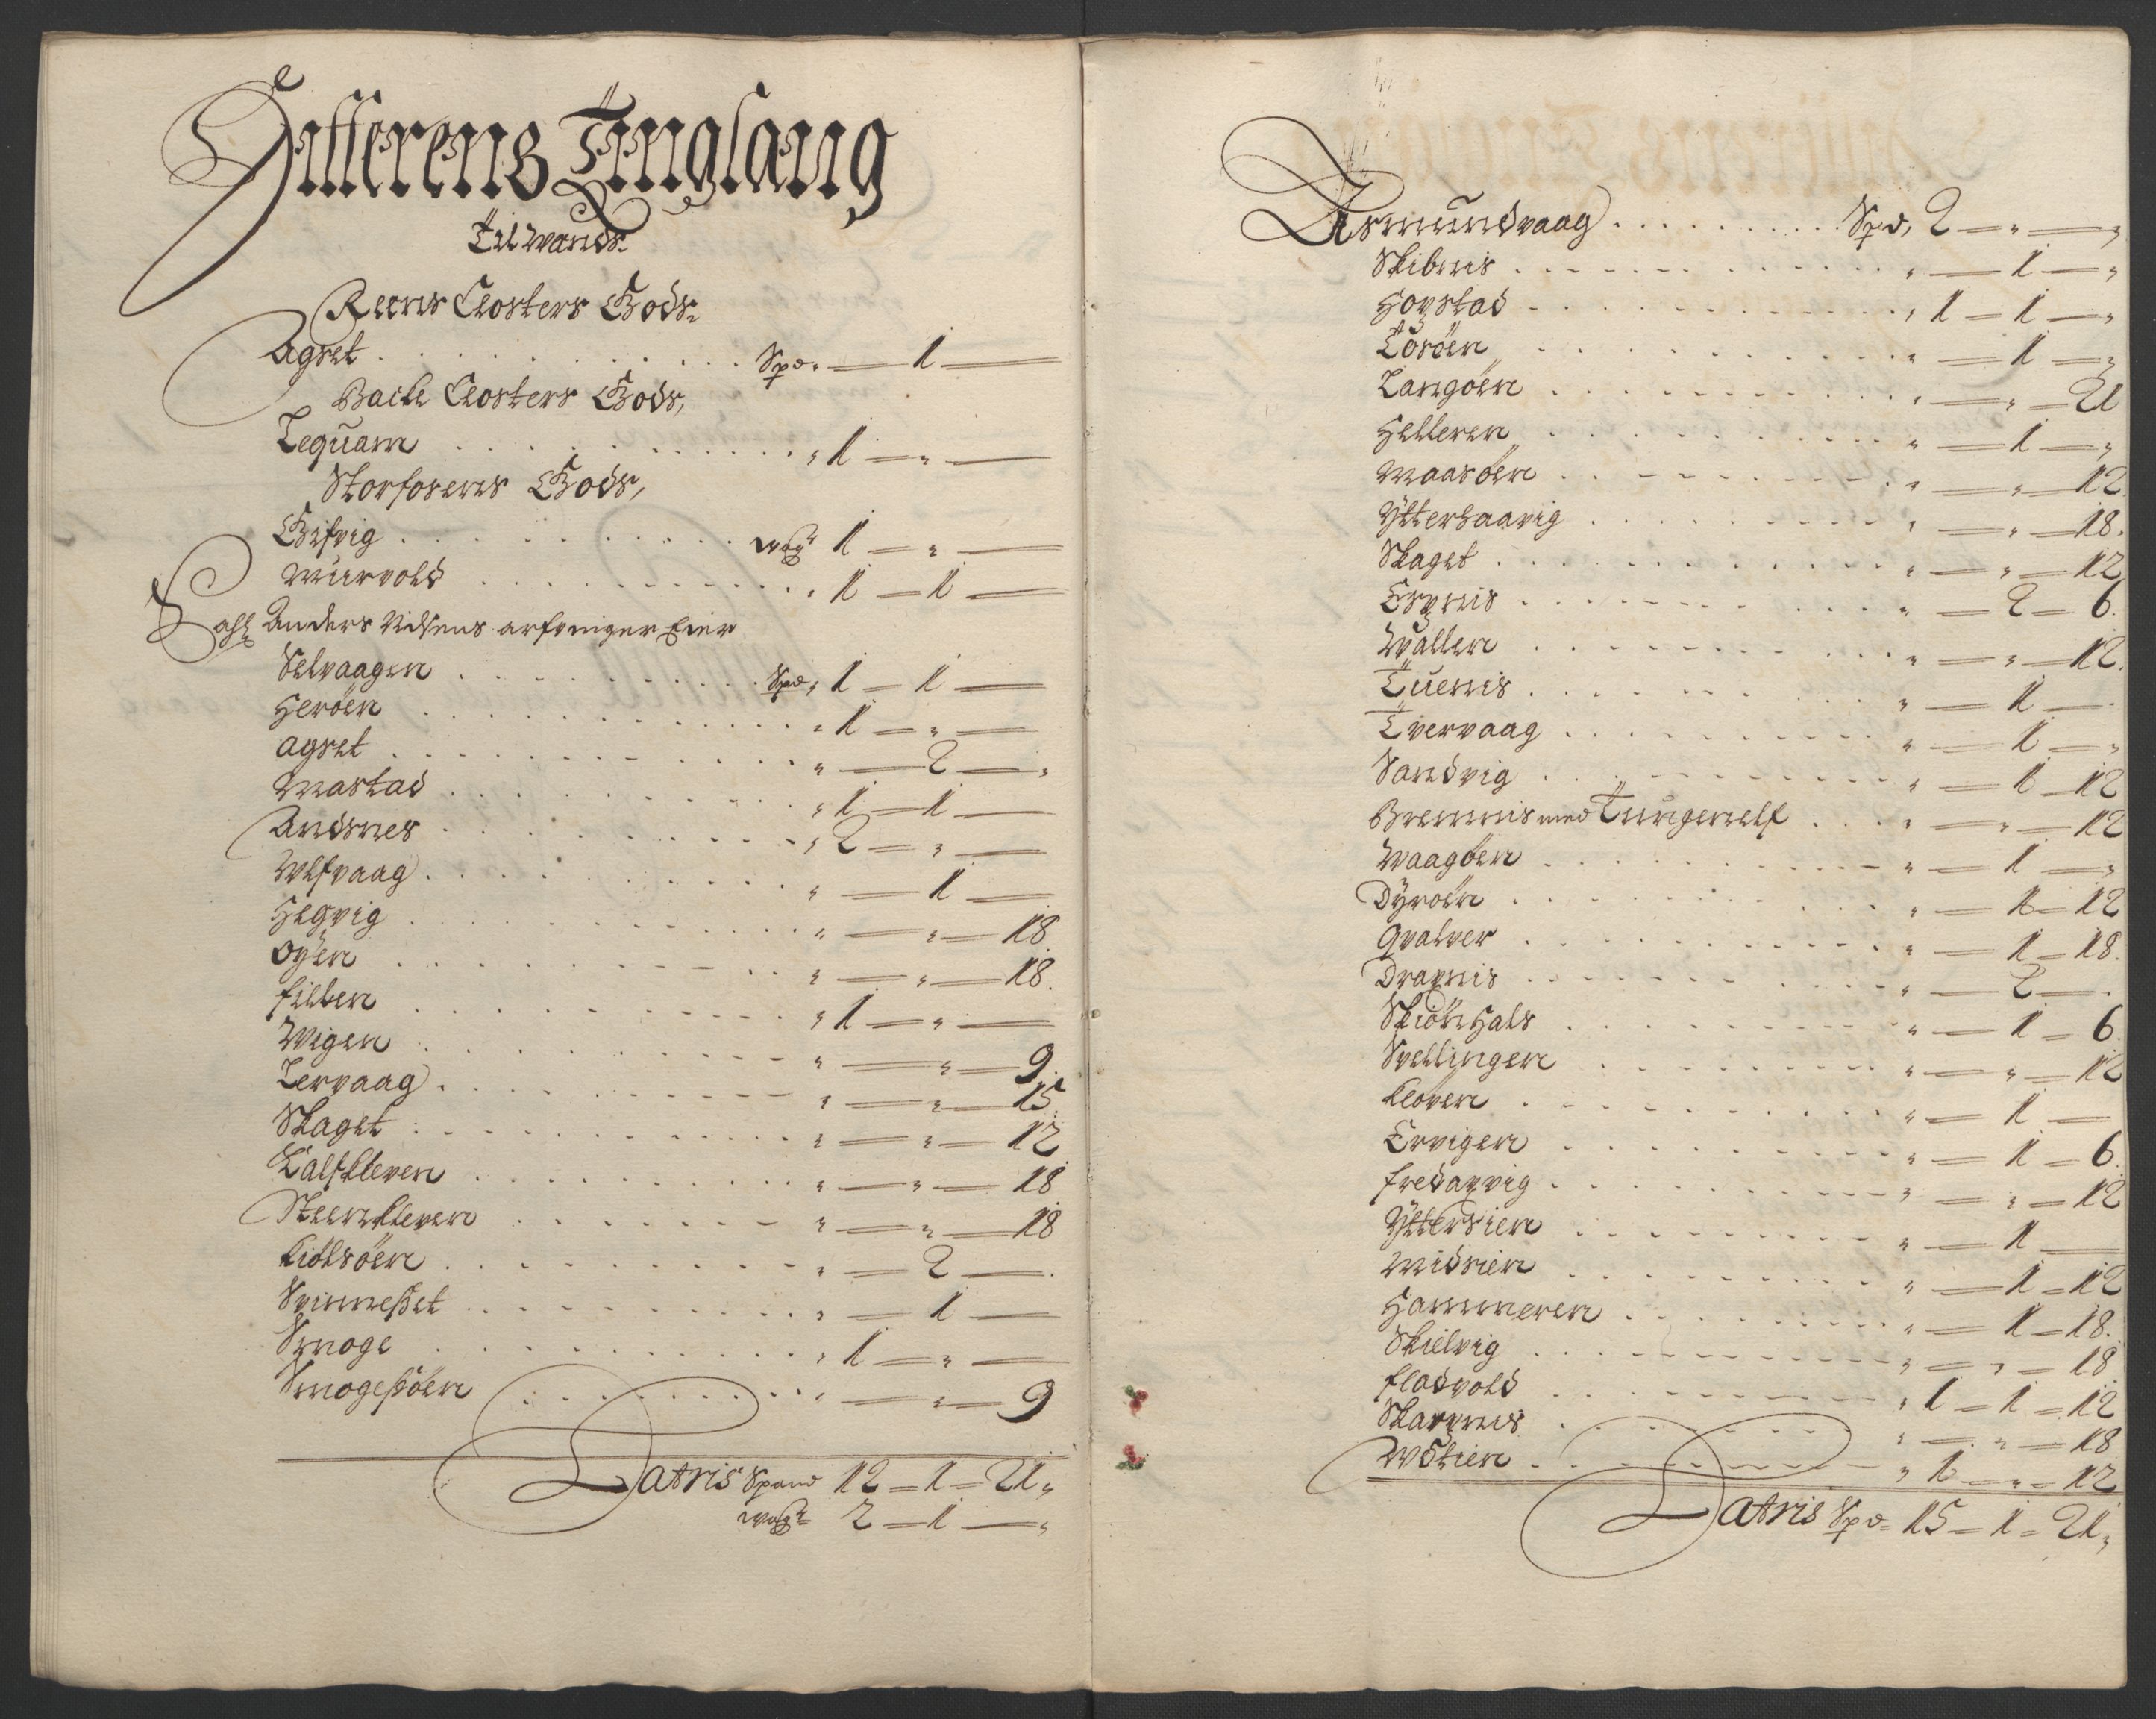 Hitterens Tinglaug
Tilwands
Reens Closters Gods
Agset . . . Spd. — 1 —
Bache Closters Gods,
Lequam . . . „ 1 — „ —
Storfosens Gods,
Gifvig . . . wog 1 — „ —
Muervold . . . „ 1 — 1 —
Sahl Anders Nilsens arfvinger Eier
Selvaagen . . . Spd, 1 — 1 —
Heröen . . . „ 1 — „ —
Agset . . . „ — 2 — „
Mastad . . . „ 1 — 1 —
Andsnes . . . „ 2 — „ —
Ulfvaag . . . „ — 1 —
Helgvig . . . „ — „ — 18
Oyen . . . „ — „ — 18.
Fillen . . . „ 1 — „ —
Wigen . . . „ — „ — 9.
Lervaag . . . „ — „ — 15
Skaget . . . „ — „ — 12
Kalfkleven . . . „ — „ — 18
Steenkleven . . . „ — „ — 18
Kiölsöen . . . „ — 2 — .
Svinneßet . . . „ — 1 —
Smoge . . . „ 1 — „ —
Smogeßöen . . . „ — „ — 9
Latris Spand 12 — 1 — 21„
wog 2 — 1 — „
Asmundvaag . . . Spd, 2 — „ — „
Skibnis . . . „ — 1 — „
Hopstad . . . „ 1 — 1 — „
Tosöen . . . „ — 1 — „
Langöen . . . „ — „ — 21
Helleren . . . „ — 1 — „
Maasöen . . . „ — „ — 12
Ytterhaavig . . . „ — „ — 18.
Skaget . . . „ — „ — 12
Espnis . . . „ — 2 — 6.
Wallen . . . „ — „ — 12.
Tuenis . . . „ — 1 — .
Tvervaag . . . „ — 1 — „
Sandvig . . . „ — 1 — 12
Bremnis med Tungenelf . . . „ — „ — 12
Waagöen . . . „ — 1 — „
Dyröen . . . „ — 1 — 12
Qvalver . . . „ — 1 — 18.
Dragnis . . . „ — 2 — .
Skiönhals . . . „ — 1 — 6.
Svellingen . . . „ — „ — 12
Kloven . . . „ — 1 —
Ervigen . . . „ — 1 — 6.
Fredagvig . . . „ — „ — 12
Yttersien . . . „ — 1 —
Midsien . . . „ — 1 — 12
Hammeren . . . „ — 1 — 18.
Skielvig . . . „ — „ — 18
Fladvold . . . „ 1 — 1 — 12
Skarpnes . . . „ — „ — 18
. . . „ 1 — „ — 12
Latris Spd 15 — 1 — 21„